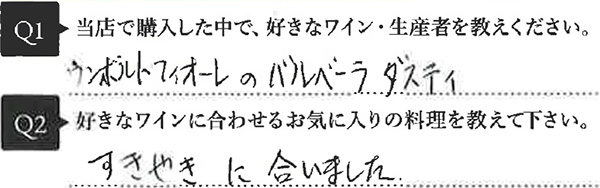 Q1 当店で購入した中で、好きなワイン・生産者を教えください。
ウンベルトフィオーレ の バルベーラ ダスティ
Q2 好きなワインに合わせるお気に入りの料理を教えて下さい。
すきやき に 合いました.